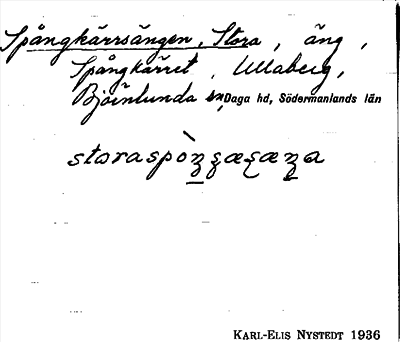 Spångkärrsängen, Stora, äng,
Spångkärret, Ullaberg,
Björnlunda sn, Daga hd, Södermanlands län
KARL-ELIS NYSTEDT 1936